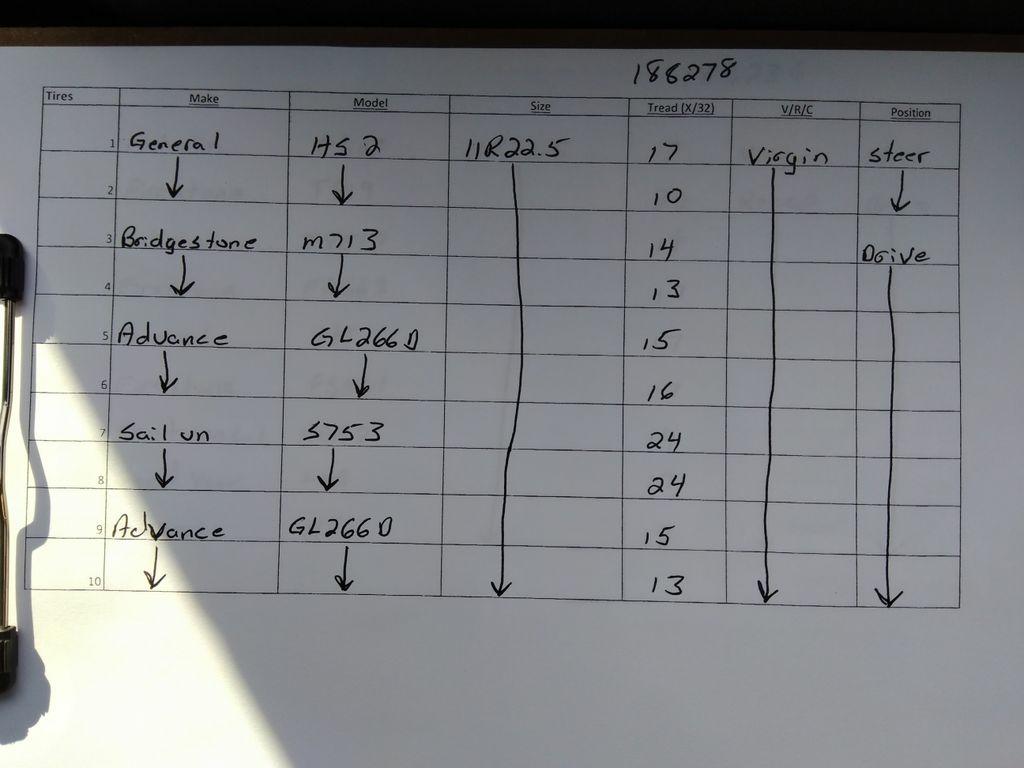 188278
Tires Make Model Size Tread (X/32) V/R/C Position
1 General HS 2 11R22.5 17 Virgin steer
2 10
3 Bridgestone m713 14 Drive
4 13
5 Advance GL266D 15
6 16
7 Sailun S753 24
8 24
9 Advance GL266D 15
10 13